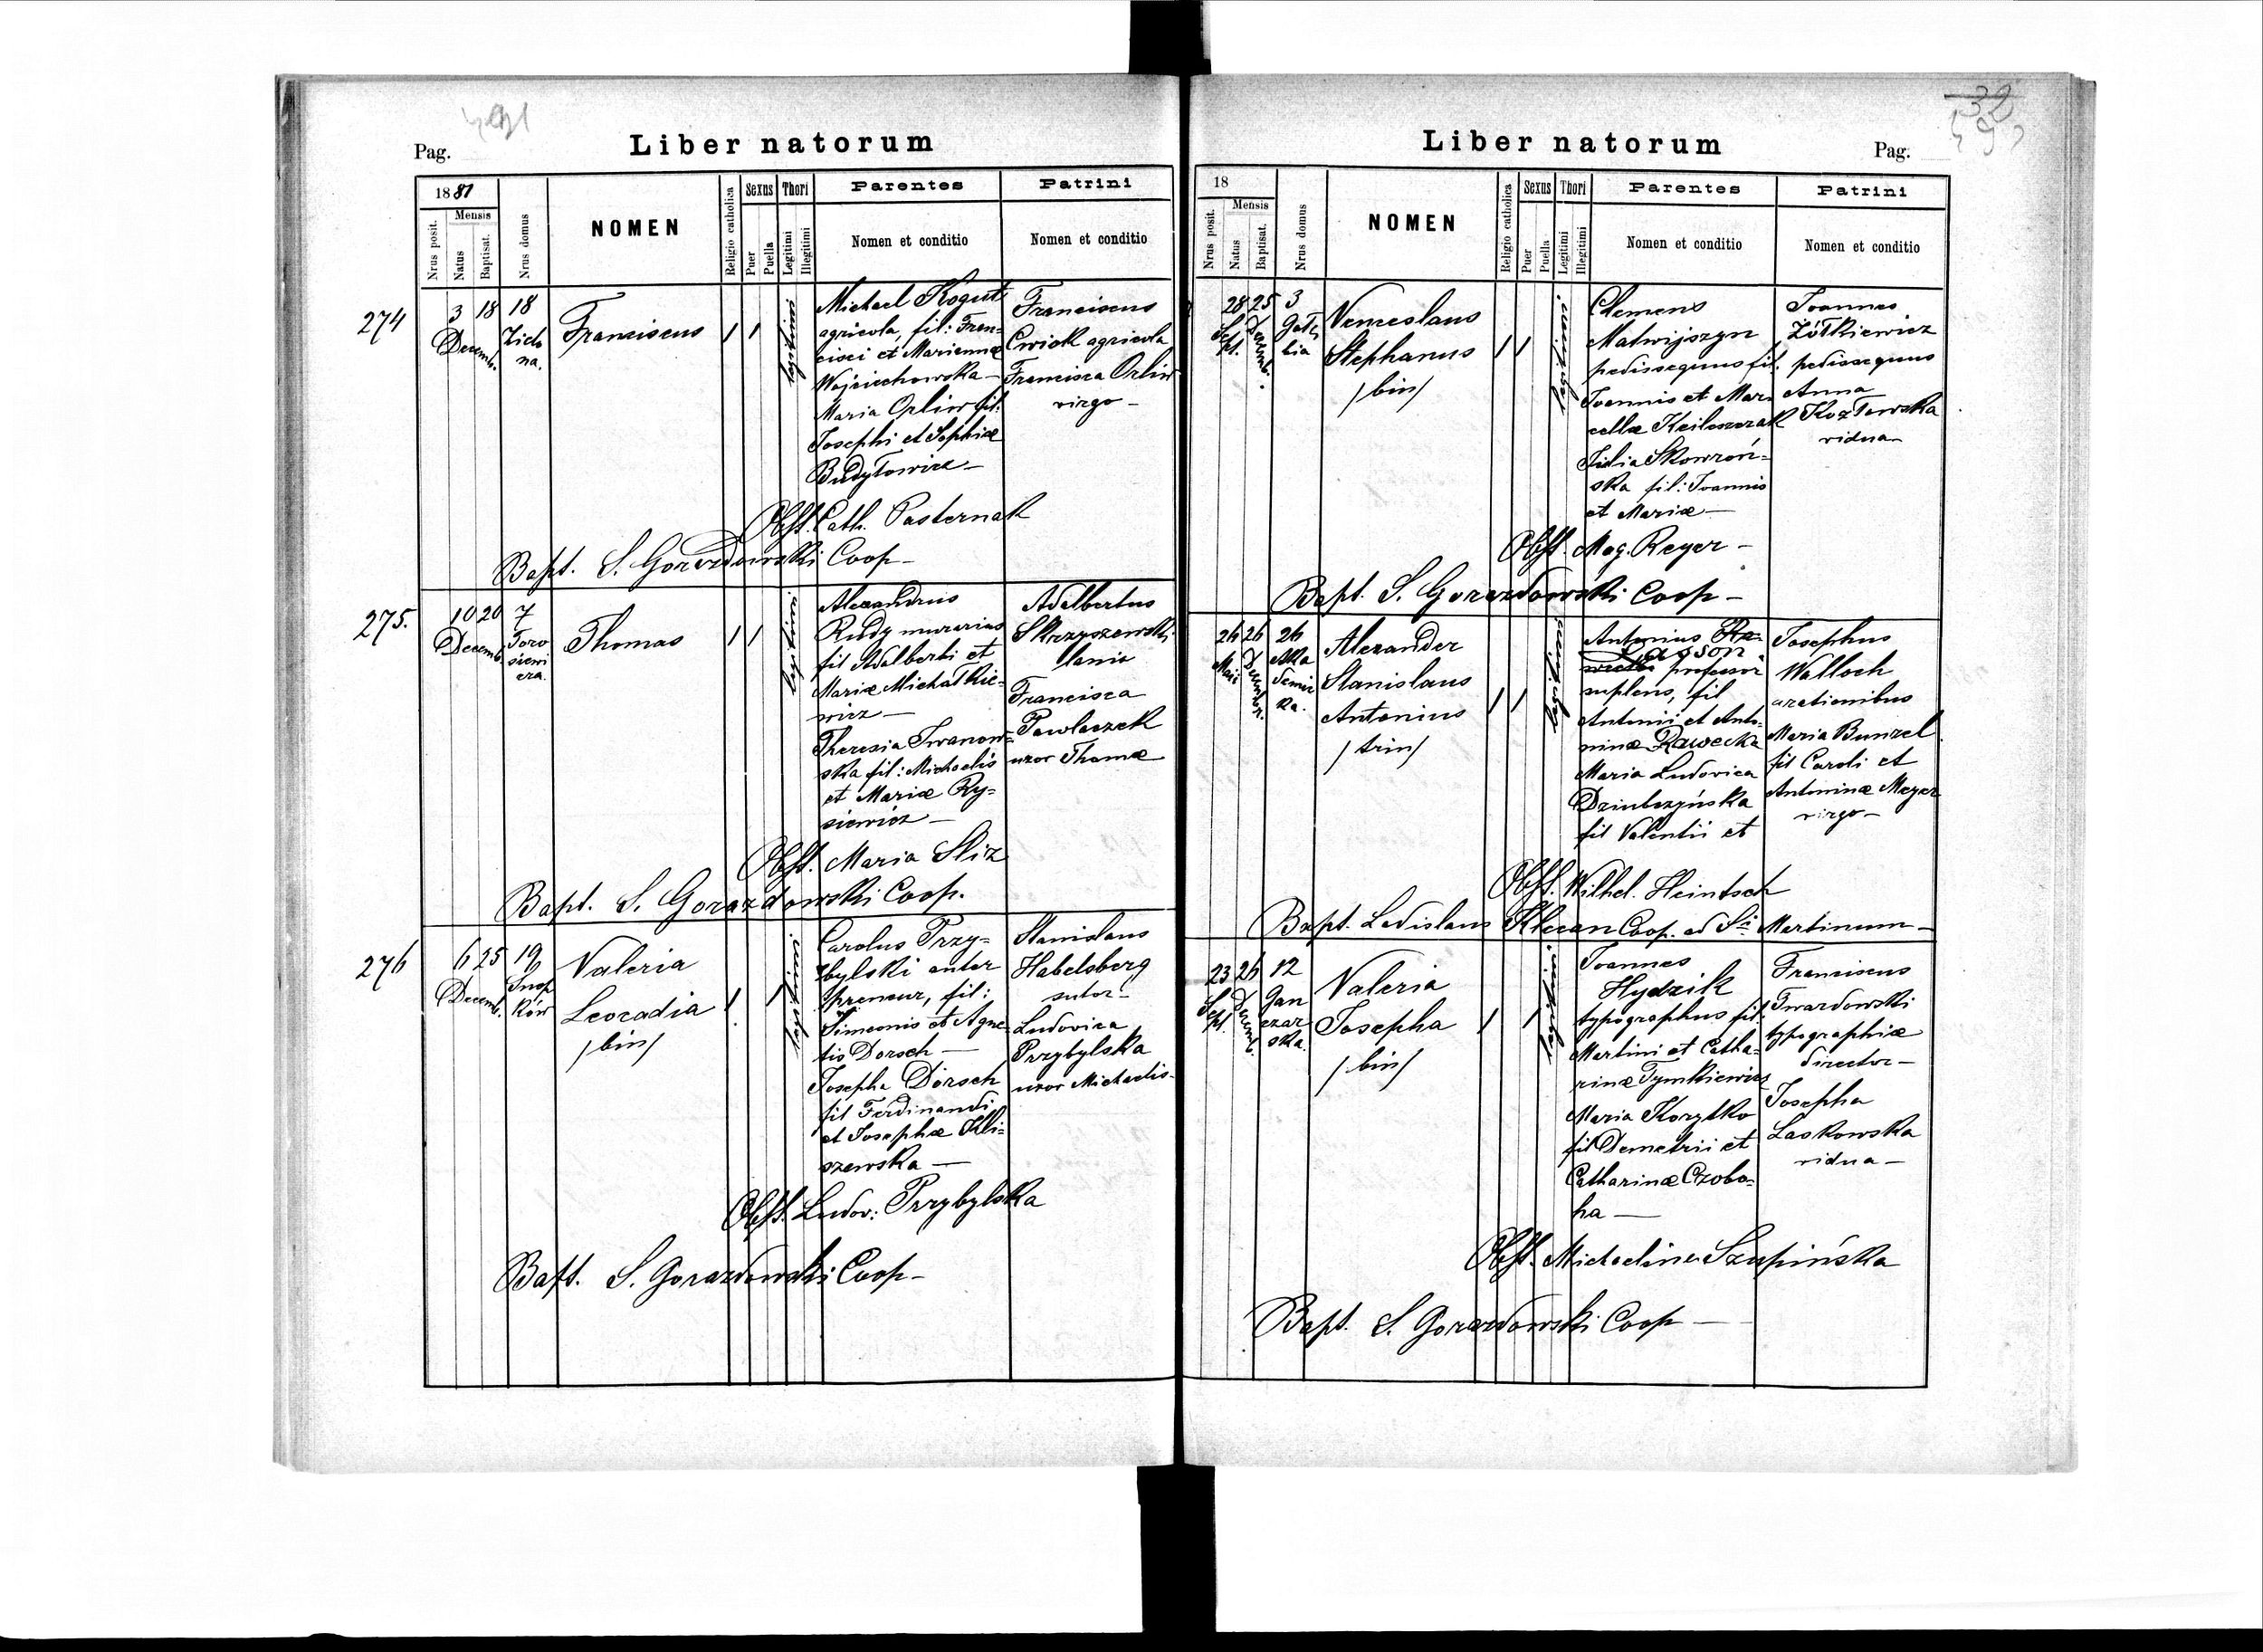 Liber natorum
Pag.
1881
Nrus posit.
Mensis
Natus
Baptisat.
Nrus domus
NOMEN
Religio catholica
Sexus
Puer
Puella
Thori
Legitimi
Illegitimi
Parentes
Nomen et conditio
Patrini
Nomen et conditio
274
3 18
Decemb.
18
Zielo
na.
Franciscus
1 1
legitimi
Michael Kogut
agricola, fil: Fran-
cisci et Mariannæ
Wojciechowska —
Maria Orliw fil:
Josephi et Sophiæ
Budyłowicz —
Franciscus
Cwiok agricola
Francisca Orliw
virgo —
Obst. Cath. Pasternak
Bapt. S. Gorazdowski Coop —
275.
10 20
Decemb.
7
Toro
siewi
cza.
Thomas
1 1
legitimi
Alexandrus
Rudy murarius
fil Adalberti et
Mariæ Michałkie-
wicz —
Theresia Iwanow-
ska fil: Michaelis
et Mariæ Ry-
siewicz —
Adalbertus
Skrzyszewski
lanio
Francisca
Pawlaczek
uxor Thomæ
Obst. Maria Sliz
Bapt. S. Gorazdowski Coop.
276
6 25
Decemb.
19
Snop
ków
Valeria
Leocadia
/bin/
1 1
legitimi
Carolus Przy-
bylski anter
preneur, fil:
Simeonis et Agne-
tis Dorsch —
Josepha Dörsch
fil Ferdinandi
et Josephæ Kli-
szewska —
Stanislaus
Habelsberg
sutor —
Ludovica
Przybylska
uxor Michaelis —
Obst. Ludov: Przybylska
Bapt. S. Gorazdowski Coop —
Liber natorum
Pag.
18
Nrus posit.
Mensis
Natus
Baptisat.
Nrus domus
NOMEN
Religio catholica
Sexus
Puer
Puella
Thori
Legitimi
Illegitimi
Parentes
Nomen et conditio
Patrini
Nomen et conditio
28 25
Sept.
Decemb.
3
Gołę
bia
Venceslaus
Stephanus
/bin/
1 1
legitimi
Clemens
Matwijszyn
pedissequus fil.
Joannis et Mar-
cellæ
Julia Skowroń-
ska fil: Joannis
et Mariæ —
Joannes
Żółkiewicz
pedissequus
Anna
Kozłowska
vidua —
Obst. Mag. Reyer —
Bapt. S. Gorazdowski Coop —
26 26
Maii
Decembr.
26
Aka
demic
ka.
Alexander
Stanislaus
Antonius
/trin/
1 1
legitimi
Antonius
professor
suplens, fil
Antonii et Anto-
ninæ Rawecka
Maria Ludovica
Dziubczyńska
fil Valentii et
Josephus
Walloch
Maria Bunzel
fil Caroli et
Antoninæ Meyer
virgo —
Obst. Wilhel. Heintsch
Bapt. Ladislaus Coop. ad St: Martinum —
23 26
Sept.
Decemb.
12
Gan
czar
ska.
Valeria
Josepha
/bin/
1 1
legitimi
Joannes
Hydzik
typographus fil
Martini et Catha-
rinæ Tymkiewicz
Maria Korytko
fil Demetrii et
Catharinæ Czobo-
ha —
Franciscus
Twardowski
typographiæ
director —
Josepha
Laskowska
vidua —
Obst. Michaelina Szupińska
Bapt. S. Gorazdowski Coop —